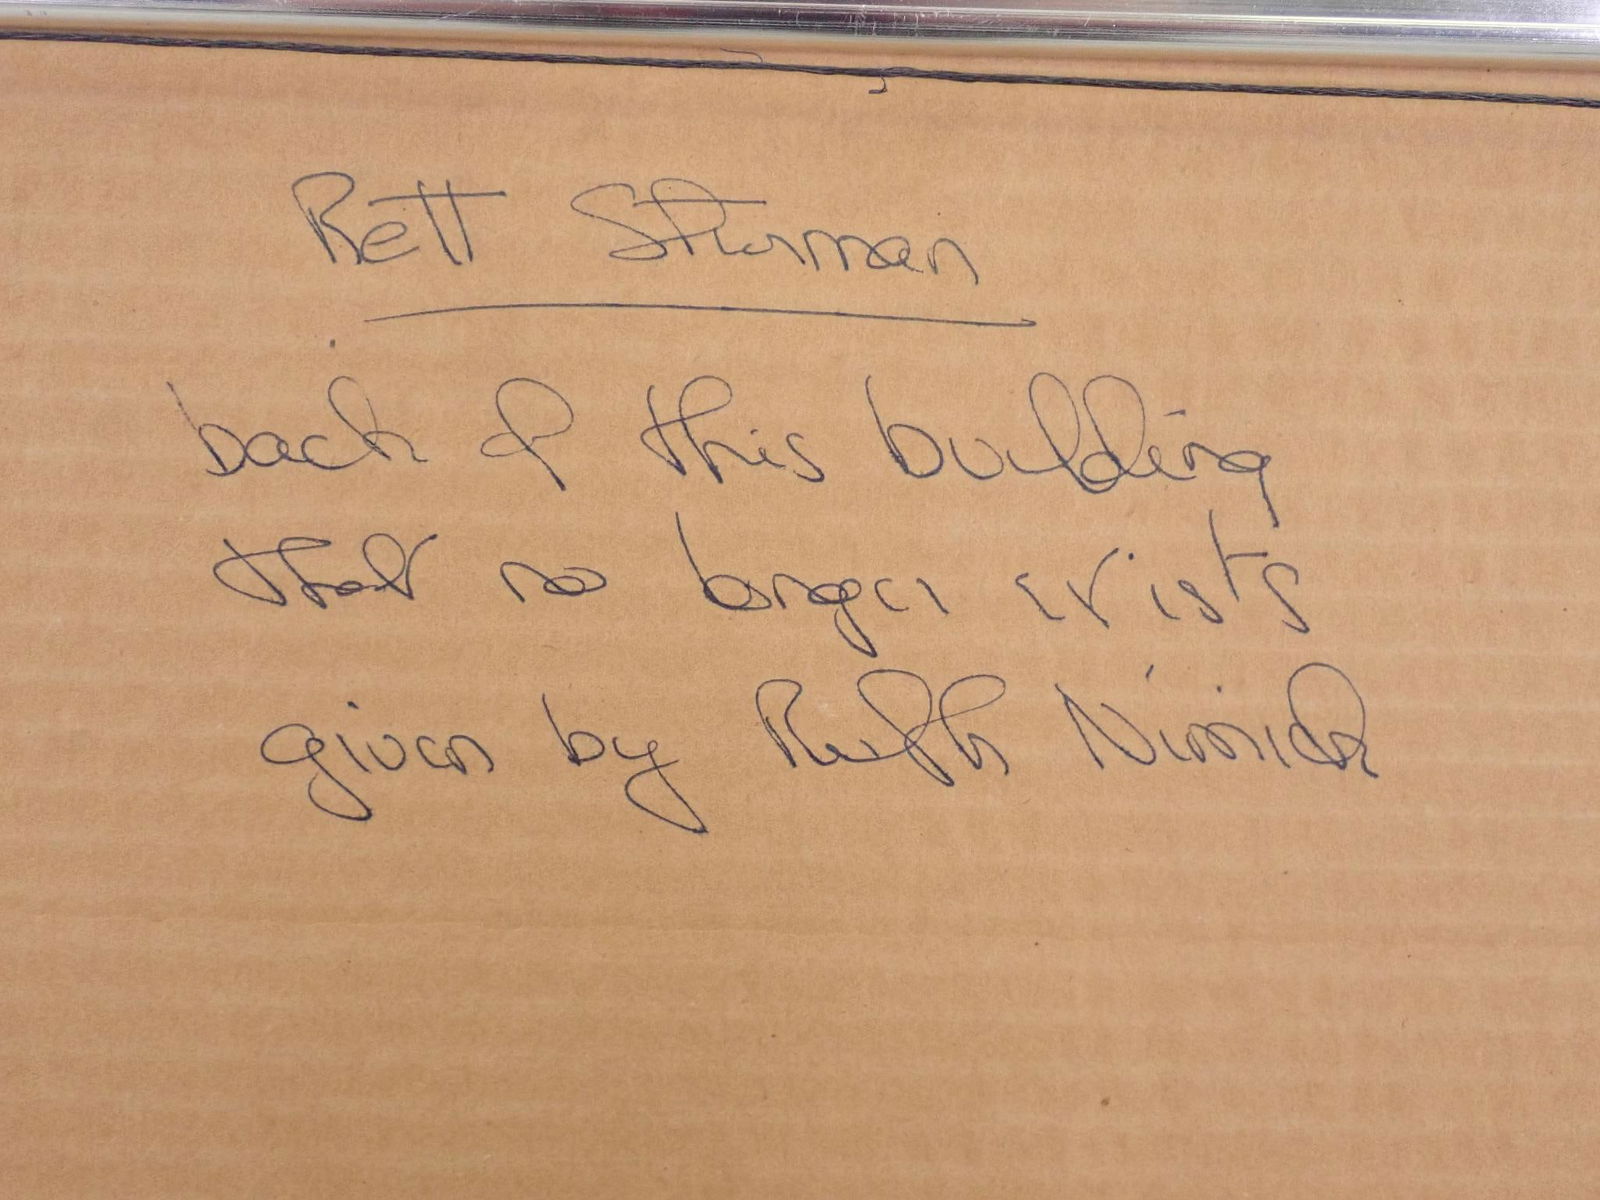 Rett Sturman
back of this building
that no longer exists
given by Ruth Nimick